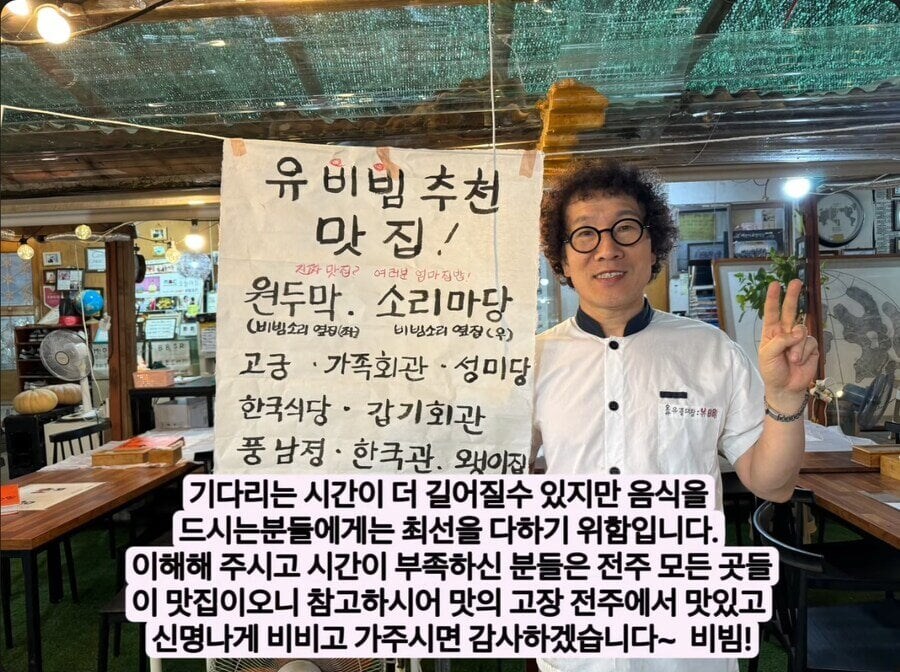 유비빔 추천
맛집!
진짜 맛집? 여러분 엄마집밥!
원두막. 소리마당
(비빔소리 옆집(좌) 비빔소리 옆집(우)
고궁 · 가족회관 · 성미당
한국식당 · 갑기회관
풍남정 · 한국관. 옛이집
기다리는 시간이 더 길어질수 있지만 음식을
드시는분들에게는 최선을 다하기 위함입니다.
이해해 주시고 시간이 부족하신 분들은 전주 모든 곳들
이 맛집이오니 참고하시어 맛의 고장 전주에서 맛있고
신명나게 비비고 가주시면 감사하겠습니다~ 비빔!